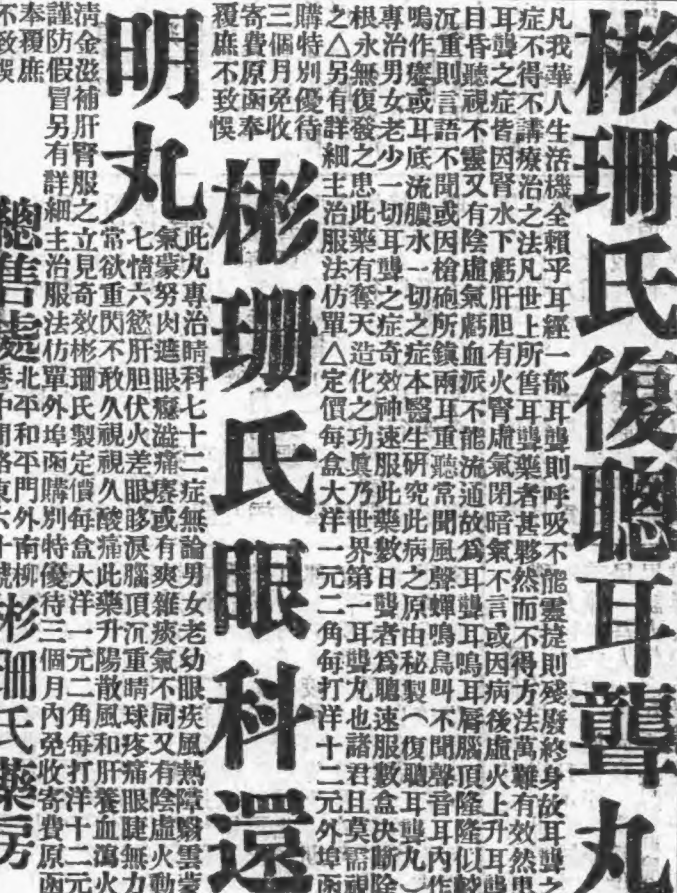 彬珊氏復聰耳聾丸
凡我華人生活機全賴乎耳經一部耳聾則呼吸不能靈捷則殘廢終身故耳聾之
症不得不講療治之法凡世上所售耳聾藥者甚夥然而不得方法萬難有效然患
耳聾之症皆因腎水下虧肝胆有火腎虛氣閉暗氣不言或因病後虛火上升耳聾
目昏聽視不靈又有陰虛氣虧血派不能流通故爲耳聾耳鳴耳脣腦頂隆隆似
沉重則言語不聞或因槍砲所鎮兩耳重聽常聞風聲蟬鳴鳥叫不聞聲音耳內作
鳴作癢或耳底流膿水一切之症本醫生研究此病之原由秘製（復聰耳聾丸）
專治男女老少一切耳聾之症奇效神速服此藥數日聾者爲聰速服數盒决斷除
根永無復發之患此藥有奪天造化之功眞乃世界第一耳聾丸也諸君且莫視
之△另有詳細主治服法仿單△定價每盒大洋一元二角每打洋十二元外埠函
購特別優待
三個月免收
寄費原函奉
覆庶不致悞
彬珊氏眼科還
明丸
此丸專治睛科七十二症無論男女老幼眼疾風熱障翳雲蒙
氣蒙努肉遮眼癮澁痛癢或有爽雜痰氣不同又有陰虛火動
七情六慾肝胆伏火差眼眵淚腦頂沉重睛球疼痛眼睫無力
常欲重閃不敢久視視久酸痛此藥升陽散風和肝養血瀉火
淸金滋補肝腎服之立見奇效彬珊氏製定價每盒大洋一元二角每打洋十二元
謹防假冒另有詳細主治服法仿單外埠函購別特優待三個月內免收寄費原函
奉覆庶
不致悞
總售處
北平和平門外南柳
巷中間路東六十號
彬珊氏藥房